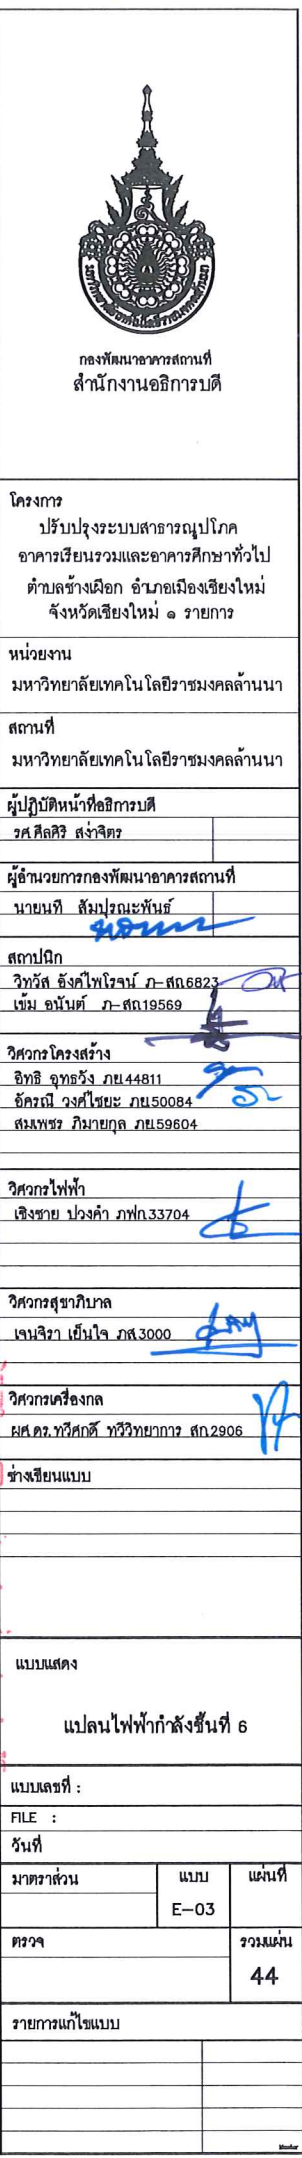 มหาวิทยาลัยเทคโนโลยีราชมงคลล้านนา
กองพัฒนาอาคารสถานที่
สำนักงานอธิการบดี
โครงการ
ปรับปรุงระบบสาธารณูปโภค
อาคารเรียนรวมและอาคารศึกษาทั่วไป
ตำบลช้างเผือก อำเภอเมืองเชียงใหม่
จังหวัดเชียงใหม่ ๑ รายการ
หน่วยงาน
มหาวิทยาลัยเทคโนโลยีราชมงคลล้านนา
สถานที่
มหาวิทยาลัยเทคโนโลยีราชมงคลล้านนา
ผู้ปฏิบัติหน้าที่อธิการบดี
รศ.ศีลศิริ สง่าจิตร
ผู้อำนวยการกองพัฒนาอาคารสถานที่
นายนที สัมปุรณะพันธ์
สถาปนิก
วิทวัส อังค์ไพโรจน์ ภ-สถ.6823
เข้ม อนันต์ ภ-สถ.19569
วิศวกรโครงสร้าง
อิทธิ อุทธวัง ภย.44811
อัครณี วงศ์ไชยะ ภย.50084
สมเพชร ภิมายกุล ภย.59604
วิศวกรไฟฟ้า
เชิงชาย ปวงคำ ภฟก.33704
วิศวกรสุขาภิบาล
เจนจิรา เย็นใจ ภส.3000
วิศวกรเครื่องกล
ผศ.ดร.ทวีศกดิ์ ทวีวิทยาการ สก.2906
ช่างเขียนแบบ
แบบแสดง
แปลนไฟฟ้ากำลังชั้นที่ 6
แบบเลขที่ :
FILE :
วันที่
มาตราส่วน แบบ แผ่นที่
E-03
ตรวจ รวมแผ่น
44
รายการแก้ไขแบบ
Master